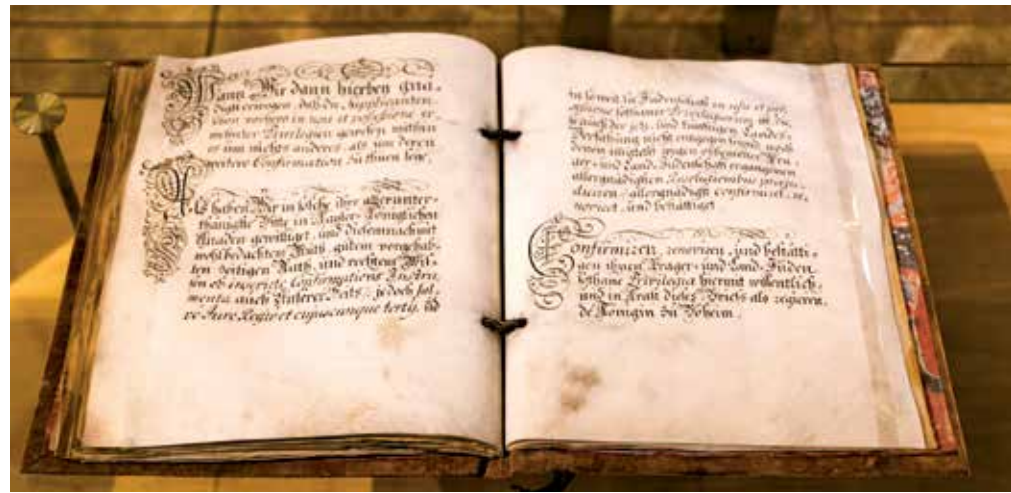 Wann Wir dann hierbey gnä-
digst erwogen, daß die Supplicanten
schon vorhero in usu et possessione er-
wehnter Privilegien gewesen, mithin
es um nichts anderes, als um deren
weitere Confirmation zu thuen seye,
Als haben Wir in solche ihre allerunter-
thänigste Bitte in Kayser-Königlichen
Gnaden gewilliget, und diesemnach mit
wohlbedachten Muth, gutem vorgehab-
ten zeitigen Rath, und rechtem Wis-
sen ob inserirte Confirmations Instru-
menta auch Unserer Seits, jedoch sal-
vo Jure Regio et cujuscunque tertij, und
in so weit die Judenschafft in usu et pos-
sessione sothaner Privilegiorum ist, die
auch der jetz- und künftigen Landes-
Verfassung nicht entgegen seynd, noch
denen
ger- und Land-Judenschafft ergangenen
allergnädigsten Resolutionibus præju-
diciren, allergnädigst confirmiret, re-
noviret, und bestättiget
Confirmiren, renoviren, und bestätti-
gen ihnen Prager- und Land-Juden
sothane Privilegia hiermit wissentlich,
und in Krafft dieses Briefs als regieren-
de Königin zu Böheim,